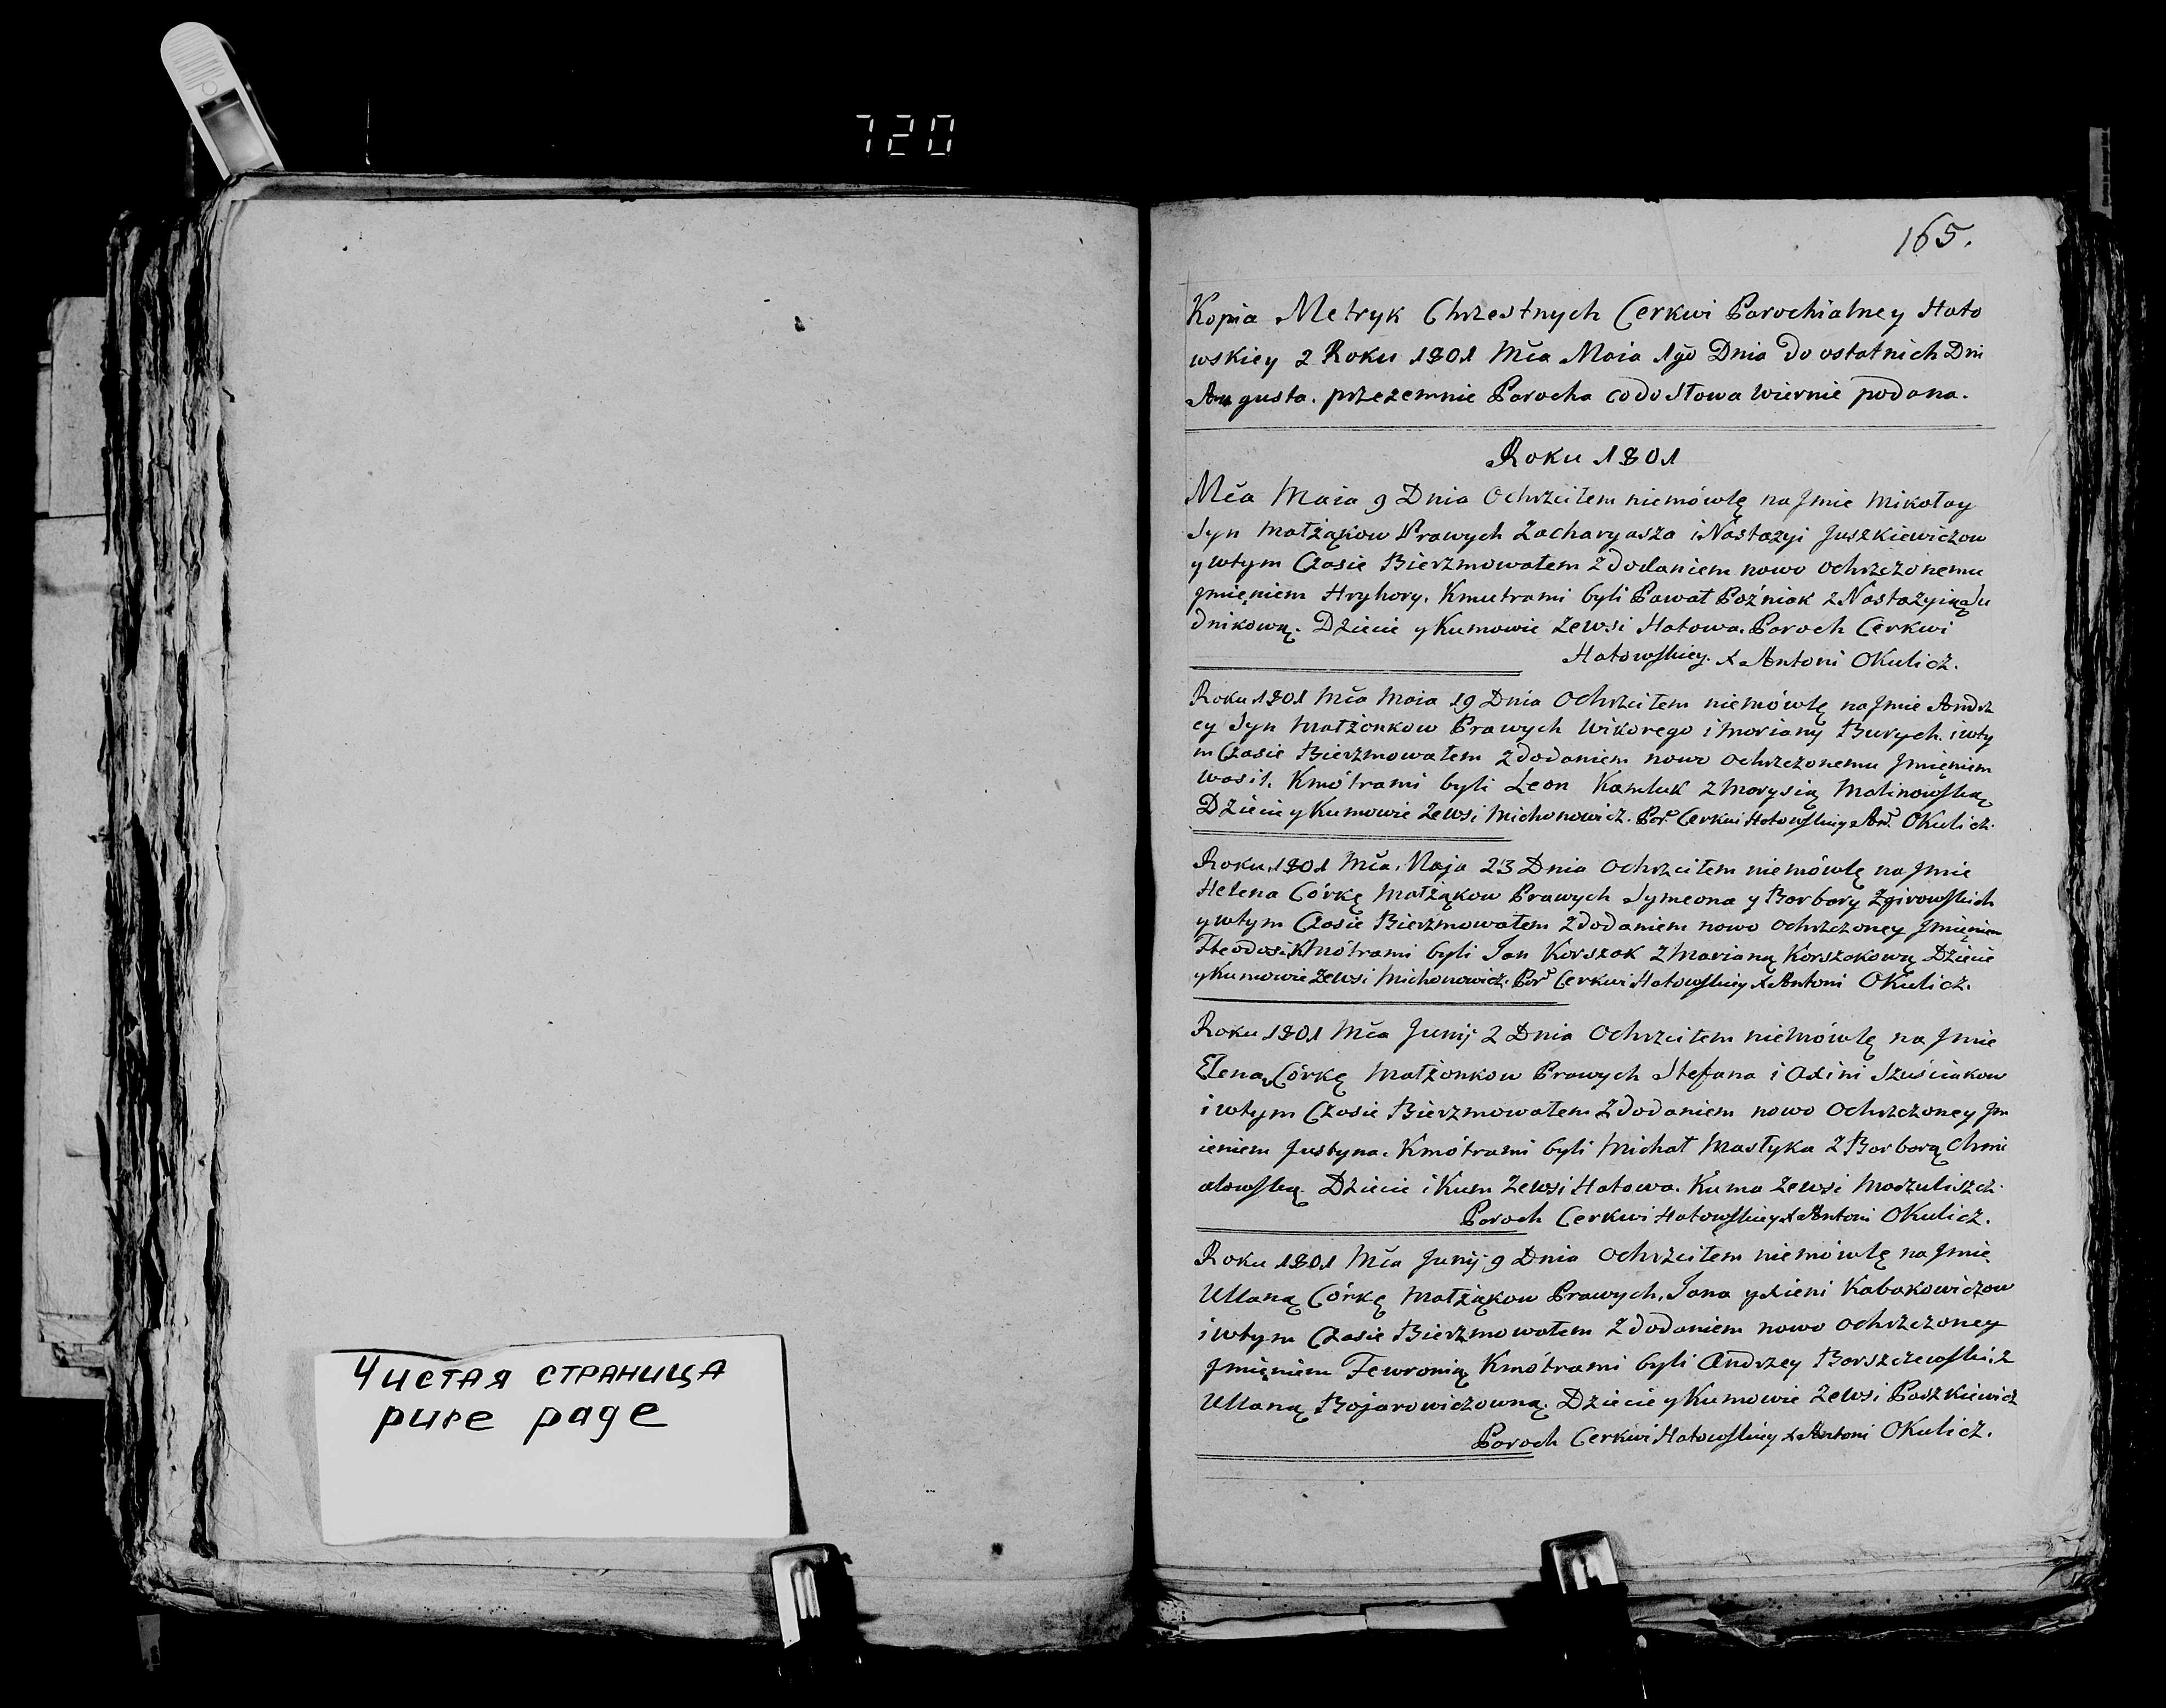 720
Чистая страница
pure page
165.
Kopia Metryk Chrzestnych Cerkwi Parochialney Hato
wskiey z Roku 1801 Mča Maia 1go Dnia do ostatnich Dni
Augusta. przezemnie Parocha co do słowa wiernie podana.
Roku 1801
Mča Maia 9 Dnia Ochrzciłem niemówlę na Jmie Mikołay
Syn Małżąkow Prawych Zacharyasza i Nastazyi Juszkiewiczow
y wtym Czasie Bierzmowałem z dodaniem nowo ochrzczonemu
Jmięniem Hryhory. Kmutrami byli Pawał Poźniak z Nastazyią Su
dnikową. Dziecie y Kumowie zewsi Hatowa. Paroch Cerkwi
Hatowskiey. X Antoni Okulicz.
Roku 1801 Mča Maia 19 Dnia Ochrzciłem niemówlę na Jmie Andrz
ey Syn Małżonkow Prawych Wikorego i Maryany Burych. i wty
m Czasie Bierzmowałem z dodaniem nowo ochrzczonemu Jmięniem
Wasil. Kmótrami byli Leon Kamluk z Marysią Malinowską
Dziecie y Kumowie zewsi Michonowicz. Par. Cerkwi Hatowskiey X Ant. Okulicz.
Roku 1801 Mča. Maja 23 Dnia Ochrzciłem niemówlę na Jmie
Helena Córkę Małżąkow Prawych Symeona y Barbary Zgirowskich
y wtym Czasie Bierzmowałem z dodaniem nowo ochrzczoney Jmięniem
Kmótrami byli Jan Korszak z Marianą Korszakową Dziecie
y Kumowie zewsi Michonowicz. Par. Cerkwi Hatowskiey X Antoni Okulicz.
Roku 1801 Mča Junij 2 Dnia Ochrzciłem niemówlę na Jmie
Elena Córkę Małżonkow Prawych Stefana i Axini Szuściakow
i wtym Czasie Bierzmowałem z dodaniem nowo ochrzczoney Jm
ieniem Justyna. Kmótrami byli Michał Mastyka z Barbarą Chmi
alowską. Dziecie i Kum zewsi Hatowa. Kuma zewsi Maczuliszcz.
Paroch Cerkwi Hatowskiey X Antoni Okulicz.
Roku 1801 Mča Junij 9 Dnia Ochrzciłem niemówlę na Jmię
Ullaną Córkę Małżąkow Prawych, Jana y Xieni Kabakowiczow
i wtym Czasie Bierzmowałem z dodaniem nowo ochrzczoney
Jmięniem Fewronią Kmótrami byli Andrzey Borszczewski z
Ullaną Bojarowiczowną. Dziecie y Kumowie zewsi Paszkiewicz
Paroch Cerkwi Hatowskiey X Antoni Okulicz.